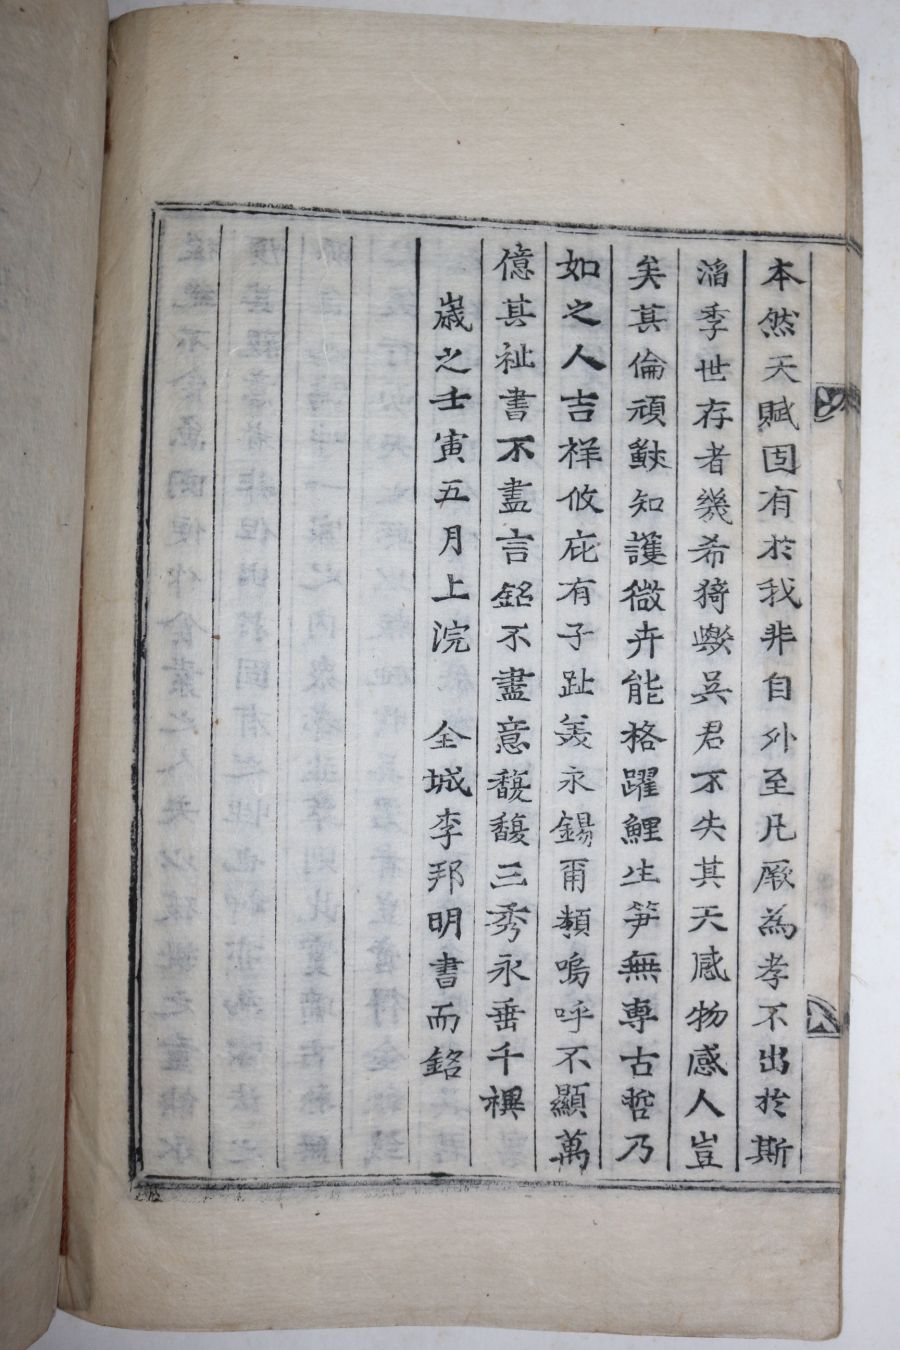 本然天賦固有於我非自外至凡厥為孝不出於斯
滔季世存者幾希猗歟吳君不失其天感物感人豈
矣其倫頑鮴知護微卉能格躍鯉生笋無專古哲乃
如之人吉祥攸庇有子趾羙永錫爾類嗚呼不顯萬
億其祉書不盡言銘不盡意馥馥三秀永垂千禩
歲之壬寅五月上浣 全城李邦明書而銘